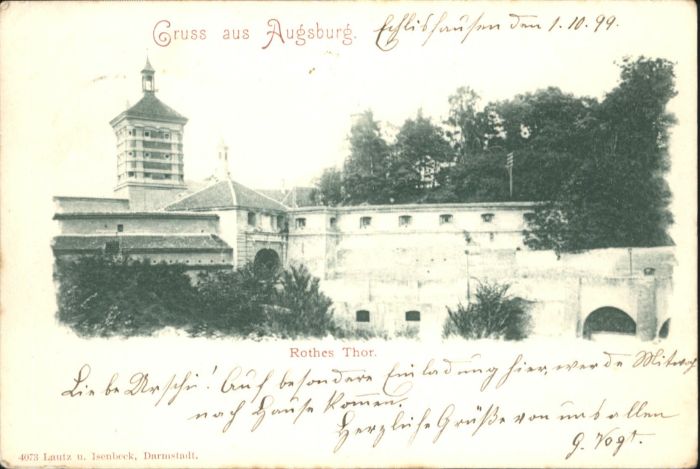 Gruss aus Augsburg. Echlishausen den 1.10.99.
Rothes Thor.
Liebe Urschi! Auf besondere Einladung hier, werde Mitwoch
nach Hause kommen.
Herzliche Grüße von uns allen
G. Vogt.
4073 Lautz u. Isenbeck, Darmstadt.